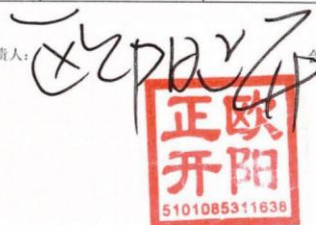 责人:欧阳
欧阳
正开
5101085311638